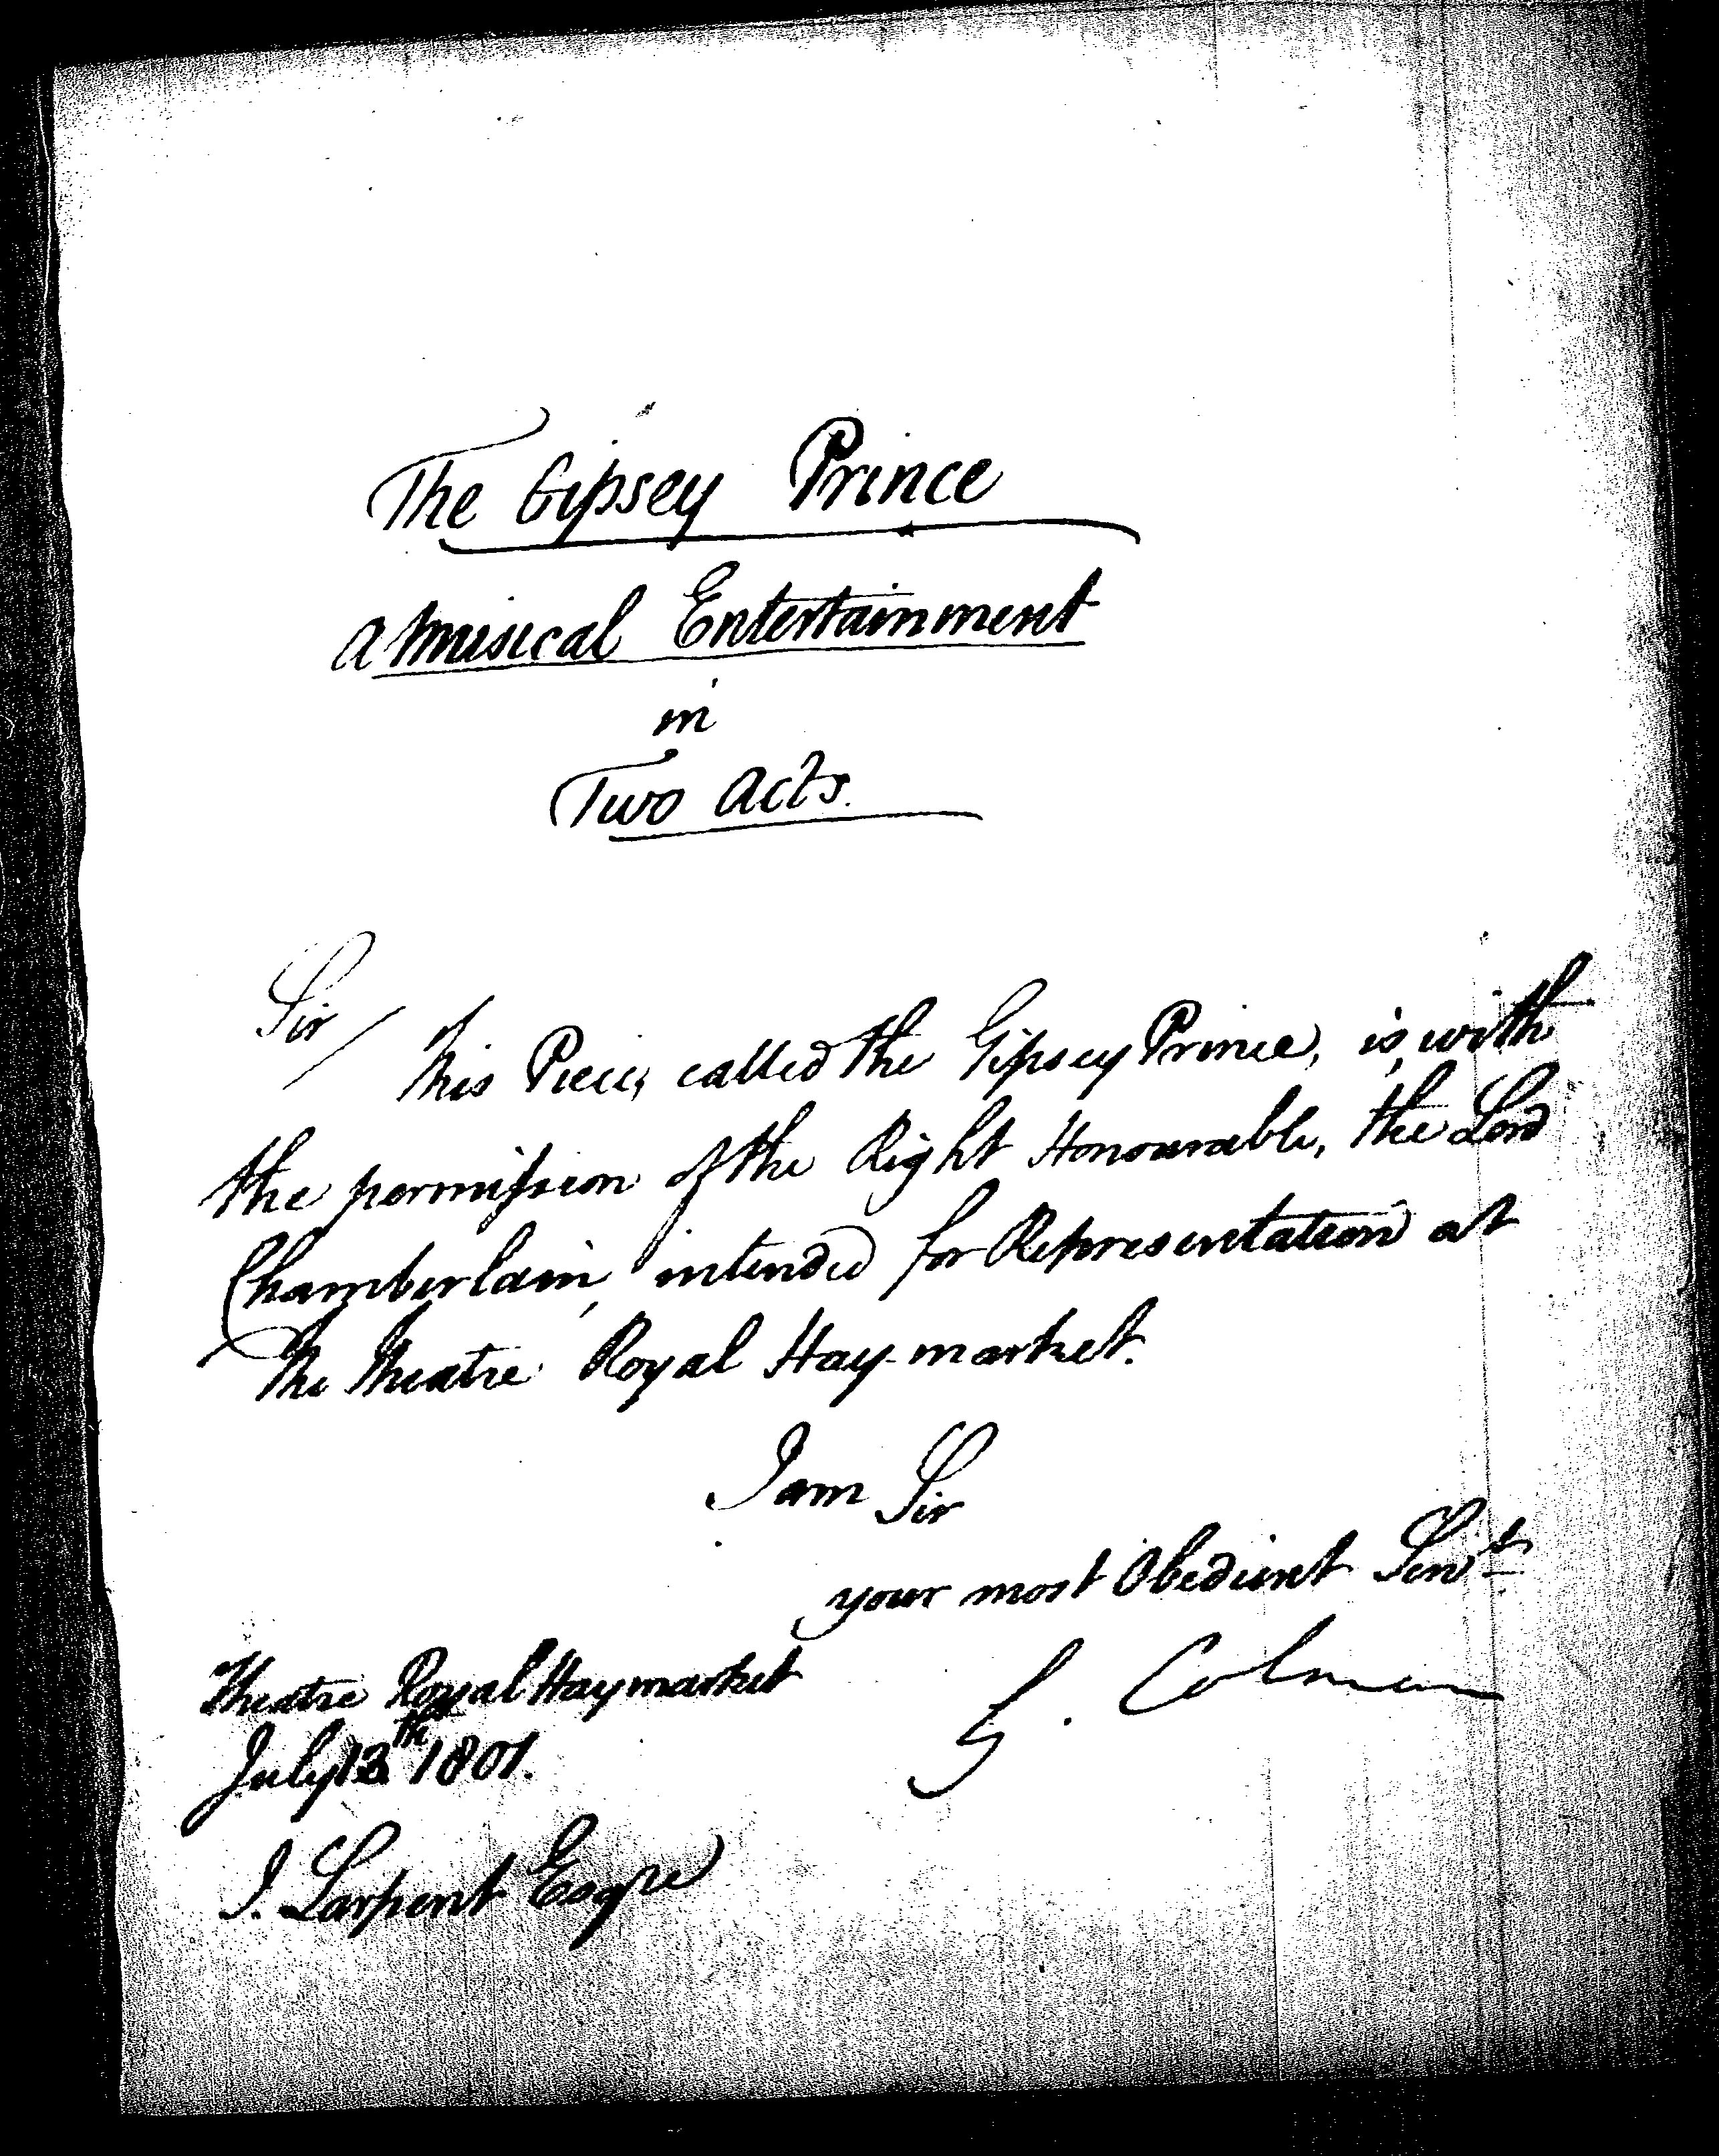 The Gipsey Prince
a Musical Entertainment
in
Two Acts.
Sir/
This Piece, called the Gipsey Prince, is, with
the permission of the Right Honourable, the Lord
Chamberlain, intended for Representation at
the Theatre Royal Hay-market.
I am Sir
your most Obedient Servt
G. Colman
Theatre Royal Haymarket
July 13th 1801.
J. Larpent Esqre